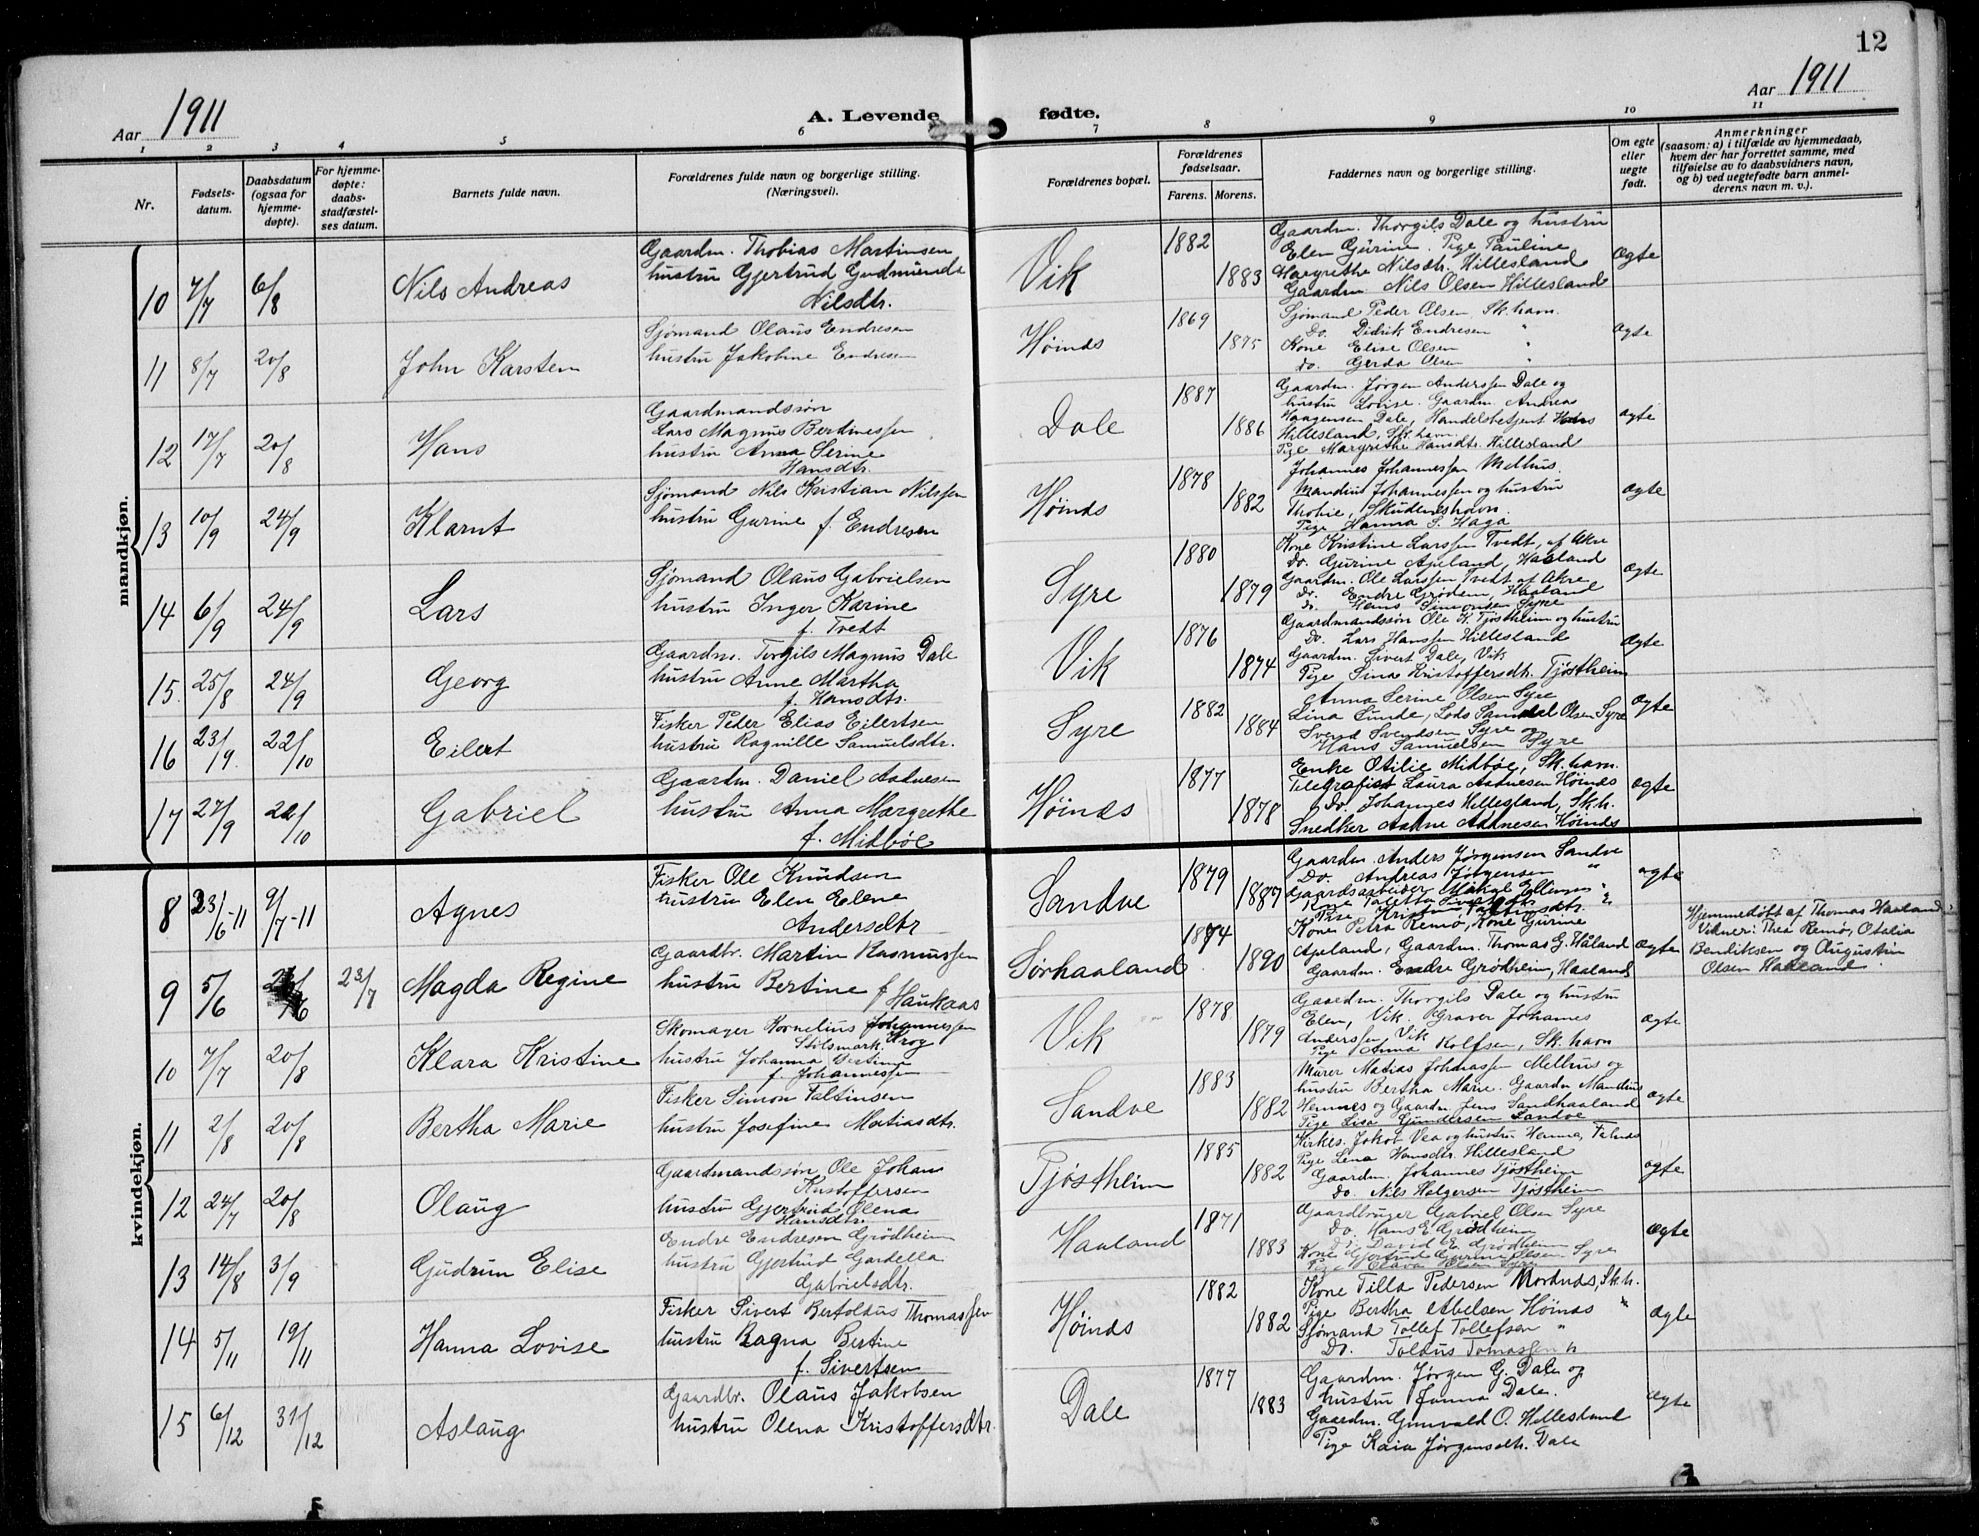 12
Aar 1911
A. Levende fødte.
Aar 1911
1 2 3 4 5 6 7 8 9 10 11
Nr.
Fødsels-
datum.
Daabsdatum
(ogsaa for
hjemme-
døpte).
For hjemme-
døpte:
daabs-
stadfæstel-
ses datum.
Barnets fulde navn.
Forældrenes fulde navn og borgerlige stilling.
(Næringsvei).
Forældrenes bopæl.
Forældrenes
fødselsaar.
Farens. Morens.
Faddernes navn og borgerlige stilling.
Om egte
eller
uegte
født.
Anmerkninger
(saasom: a) i tilfælde av hjemmedaab,
hvem der har forrettet samme, med
tilføielse av to daabsvidners navn,
og b) ved uegtefødte barn anmel-
derens navn m. v.).
mandkjøn.
10 7/7 6/8 Nils Andreas
Gaardm. Thobias Martinsen
hustru Gjertrud Gudmunda
Nilsdtr.
Vik 1882 1883
Gaardm. Thorgils Dale og hustru
Elen Gurine. Pige Pauline
Margrethe Nilsdtr. Hillesland
Gaardm. Nils Olsen Hillesland
Ægte
11 8/7 20/8 John Karsten
Sjømand Olaus Endresen
hustru Jakobine Endresen
Høinds 1869 1875
Sjømand Peder Olsen Sk.havn.
Do. Didrik Endresen "
Kone Elise Olsen "
do. Gerda Olsen "
ægte
12 17/7 20/8 Hans
Gaardmandssøn
Lars Magnus Berdinessen
hustru Anna Serine
Hansdtr.
Dale 1887 1886
Gaardm. Jørgen Anderssen Dale og
hustru Lovise. Gaardm. Andreas
Haagensen Dale, Handelsbetjent Hans
Hillesland, Sk.havn
Pige Margrethe Hansdtr. Hillesland
ægte
13 10/9 24/9 Klarnt
Sjømand Nils Kristian Nilssen
hustru Gurine f. Endresen
Høinds 1878 1882
Johannes Johannessen Melhus.
Mandius Johannessen og hustru
Thobie, Skudeneshavn.
Pige Hanna S. Haga
ægte
14 6/9 24/9 Lars
Sjømand Olaus Gabrielsen
hustru Inger Karine
f. Tvedt
Syre 1880 1879
Kone Kristine Larssen Tvedt, af Akre
Do. Gurine Apeland, Haaland
Gaardm. Ole Larssen Tvedt af Akre
do. Endre Grødem, Haaland
do. Hans Simonsen Syre
ægte
15. 25/8 24/9 Georg
Gaardm. Torgils Magnus Dale
hustru Anne Martha
f. Hansdtr.
Vik 1876 1874
Gaardmandssøn Ole K. Tjøstheim og hustru
Do. Lars Hanssen Hillesland
Gaardm. Sivert Dale, Vik
Pige Sina Kristoffersdtr. Tjøstheim
Ægte
16 23/9. 22/10 Eilert
Fisker Peder Elias Eilertsen
hustru Ragnille Samuelsdtr.
Syre 1882 1884
Anna Serine Olsen Syre
Lina Lunde, Lods Samuel Olsen Syre
Svend Svendsen Syre og
Hans Samuelsen Syre
ægte
17 27/9 22/10 Gabriel
Gaardm. Daniel Aadnesen
hustru Anna Margrethe
f. Midbøe
Høinds 1877 1878
Enke Otilie Midbøe, Sk.havn.
Telegrafist Laura Aadnesen Høinds
Do. Johannes Hillesland, Sk.h.
Snedker Aadne Aadnesen Høinds
ægte
kvindekjøn.
8 23/6-11 9/7-11 Agnes
Fisker Ole Knudsen
hustru Elen Elene
Andersdtr
Sandve 1879 1887
Gaardm. Anders Jørgensen Sandve
Do. Andreas Jørgensen "
Gaardsarbeider
ægte
9 5/6 23/7 Magda Regine
Gaardbr. Martin Rasmussen
hustru Bertine f Haukaas
Sørhaaland 1874 1890
Kone Petra Remø, Kone Gurine
Apeland, Gaardm. Thomas G. Håland
Gaardm. Endre Grødheim, Haaland
ægte
Hjemmedøbt af Thomas Haaland
Vidner: Thea Remø, Otalia
Bendiksen og Augustin
Olsen Haaland.
10 7/7 20/8 Klara Kristine
Skomager Kornelius Johannessen
Stilsmark, Krog
hustru Johanna
f. Johannessen
Vik 1878 1879
Gaardm. Thorgils Dale og hustru
Elen, Vik. Graver Johannes
Anderssen Vik
Pige Anna Rolfsen, Sk.havn
ægte
11 2/8 20/8 Bertha Marie
Fisker Simon Faltinsen
hustru Josefine Matiasdtr.
Sandve 1883 1882
Murer Matias Johnassen Melhus og
hustru Bertha Marie. Gaardm Mandius
Hemnes og Gaardm. Jens Sandhaaland
Pige Lisa Gundersen Sandve
ægte
12 24/7 20/8 Olaug
Gaardmandssøn Ole Johan
Kristoffersen
hustru Gjertrud Olena
Hansdtr.
Tjøstheim 1885 1882
Kirkes. Jakob Vea og hustru Hanna, Falnes
Pige Lena Hansdtr. Hillesland
Gaardm. Johannes Tjøstheim
Do. Nils Helgersen Tjøstheim
ægte
13 14/8 3/9 Gudrun Elise
Endre Endresen Grødheim
hustru Gjertrud Gardella
Gabrielsdtr.
Haaland 1871 1883
Gaardbruger Gabriel Olsen Syre
Do. Hans E Grødheim
Do. David E. Grødheim
Kone Gjertrud Gurine Olsen Syre
Pige Olava Olsen Syre
Ægte
14 5/11 19/11 Hanna Lovise
Fisker Sivert Bertoldus Thomassen
hustru Ragna Bertine
f. Sivertsen
Høinds 1882 1882
Kone Tilla Pedersen Nordnes, Sk.h.
Pige Bertha Abelsen Høinds "
Sjømand Tollef Tollefsen "
Do. Tolaus Tomassen "
Ægte
15 6/12 31/12 Aslaug
Gaardbr. Olaus Jakobsen
hustru Olena Kristoffersdtr.
Dale 1877 1883
Gaardm. Jørgen G. Dale og
hustru Janna Dale.
Gaardm. Gunvald O. Hillesland
Pige Kaia Jørgensdtr. Dale
ægte